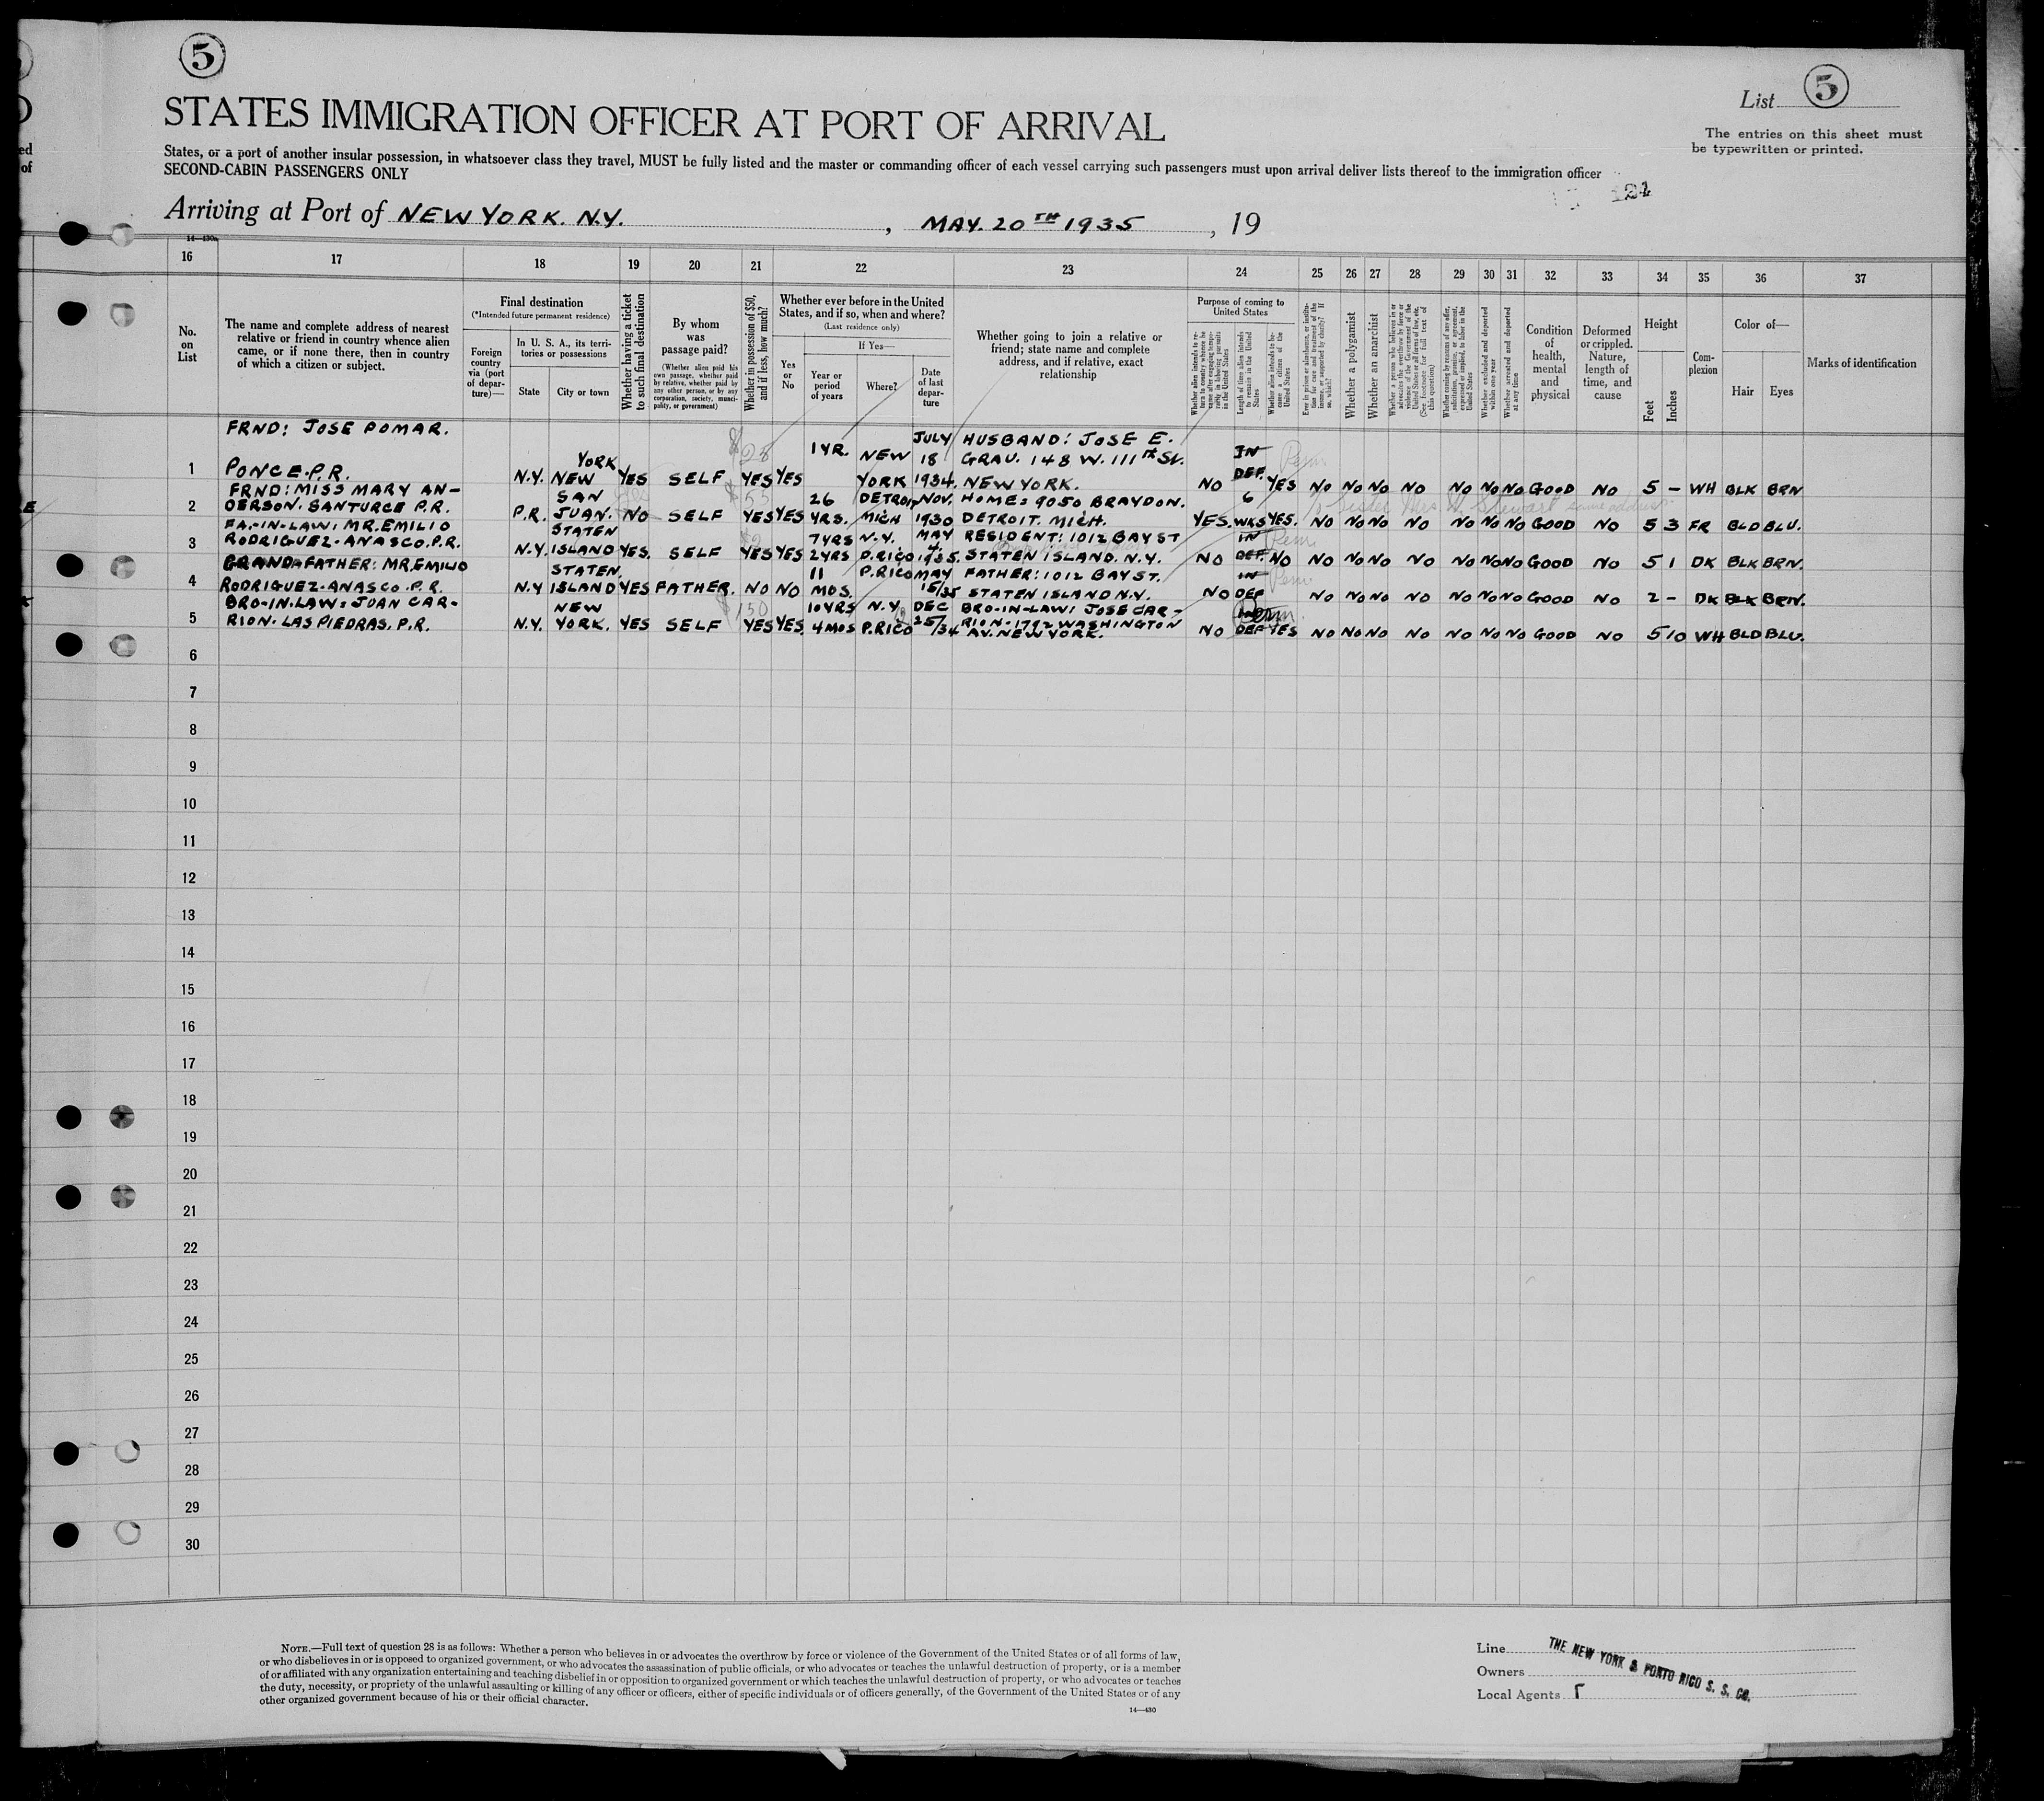 5
5
List
STATES IMMIGRATION OFFICER AT PORT OF ARRIVAL
The entries on this sheet must
be typewritten or printed.
States, or a port of another insular possession, in whatsoever class they travel, MUST be fully listed and the master or commanding officer of each vessel carrying such passengers must upon arrival deliver lists thereof to the immigration officer
SECOND-CABIN PASSENGERS ONLY
Arriving at Port of NEW YORK. N.Y. , MAY. 20 TH 1935 , 19
14—430a
16 17 18 19 20 21 22 23 24 25 26 27 28 29 30 31 32 33 34 35 36 37
No. on List
The name and complete address of nearest relative or friend in country whence alien came, or if none there, then in country of which a citizen or subject.
Final destination
(*Intended future permanent residence)
Foreign country via (port of departure)—
In U. S. A., its territories or possessions
State
City or town
Whether having a ticket to such final destination
By whom was passage paid?
(Whether alien paid his own passage, whether paid by relative, whether paid by any other person, or by any corporation, society, municipality, or government)
Whether in possession of $50, and if less, how much?
Whether ever before in the United States, and if so, when and where?
(Last residence only)
Yes or No
If Yes—
Year or period of years
Where?
Date of last departure
Whether going to join a relative or friend; state name and complete address, and if relative, exact relationship
Purpose of coming to United States
Length of time alien intends to remain in the United States
Whether alien intends to become a citizen of the United States
Whether a polygamist
Whether an anarchist
Whether excluded and deported within one year
Whether arrested and deported at any time
Condition of health, mental and physical
Deformed or crippled. Nature, length of time, and cause
Height
Feet
Inches
Complexion
Color of—
Hair
Eyes
Marks of identification
1 FRND: JOSE POMAR. PONCE. P.R. N.Y. NEW YORK YES SELF $28 YES YES 1 YR. NEW YORK JULY 18 1934. HUSBAND: JOSE E. GRAU. 148 W. 111TH St. NEW YORK. NO IN DEF. Perm YES NO NO NO NO NO NO NO GOOD NO 5 – WH BLK BRN
2 FRND: MISS MARY ANDERSON. SANTURCE P.R. P.R. SAN JUAN. NO SELF YES YES 26 YRS. DETROIT MICH NOV. 1930 HOME: 9050 BRAYDON. DETROIT. MICH. YES. 6 WKS YES. NO NO NO NO NO NO NO GOOD NO 5 3 FR BLD BLU.
3 FA.-IN-LAW: MR. EMILIO RODRIGUEZ-ANASCO. P.R. N.Y. STATEN ISLAND YES. SELF YES YES 7 YRS 2 YRS N.Y. P.RICO MAY 4. 1935. RESIDENT: 1012 BAY ST STATEN ISLAND. N.Y. NO IN DEF. Perm NO NO NO NO NO NO NO NO GOOD NO 5 1 DK BLK BRN.
4 GRAND-FATHER: MR. EMILIO RODRIGUEZ-ANASCO. P.R. N.Y STATEN. ISLAND YES FATHER. NO NO 11 MOS. P.RICO MAY 15/35 FATHER: 1012 BAY ST. STATEN ISLAND N.Y. NO IN DEF Perm NO NO NO NO NO NO NO GOOD NO 2 – DK BLK BRN.
5 BRO-IN-LAW: JUAN CARRION. LAS PIEDRAS. P.R. N.Y. NEW YORK. YES SELF $150 YES YES. 10 YRS 4 MOS N.Y. P.RICO DEC 25/34 BRO-IN-LAW: JOSE CARRION. 1772 WASHINGTON AV. NEW YORK. NO IN DEF Perm YES NO NO NO NO NO NO NO GOOD NO 5 10 WH BLD BLU.
6
7
8
9
10
11
12
13
14
15
16
17
18
19
20
21
22
23
24
25
26
27
28
29
30
NOTE.—Full text of question 28 is as follows: Whether a person who believes in or advocates the overthrow by force or violence of the Government of the United States or of all forms of law,
or who disbelieves in or is opposed to organized government, or who advocates the assassination of public officials, or who advocates or teaches the unlawful destruction of property, or is a member
of or affiliated with any organization entertaining and teaching disbelief in or opposition to organized government or which teaches the unlawful destruction of property, or who advocates or teaches
the duty, necessity, or propriety of the unlawful assaulting or killing of any officer or officers, either of specific individuals or of officers generally, of the Government of the United States or of any
other organized government because of his or their official character.
14—430
Line
Owners
Local Agents
THE NEW YORK & PORTO RICO S. S. CO.